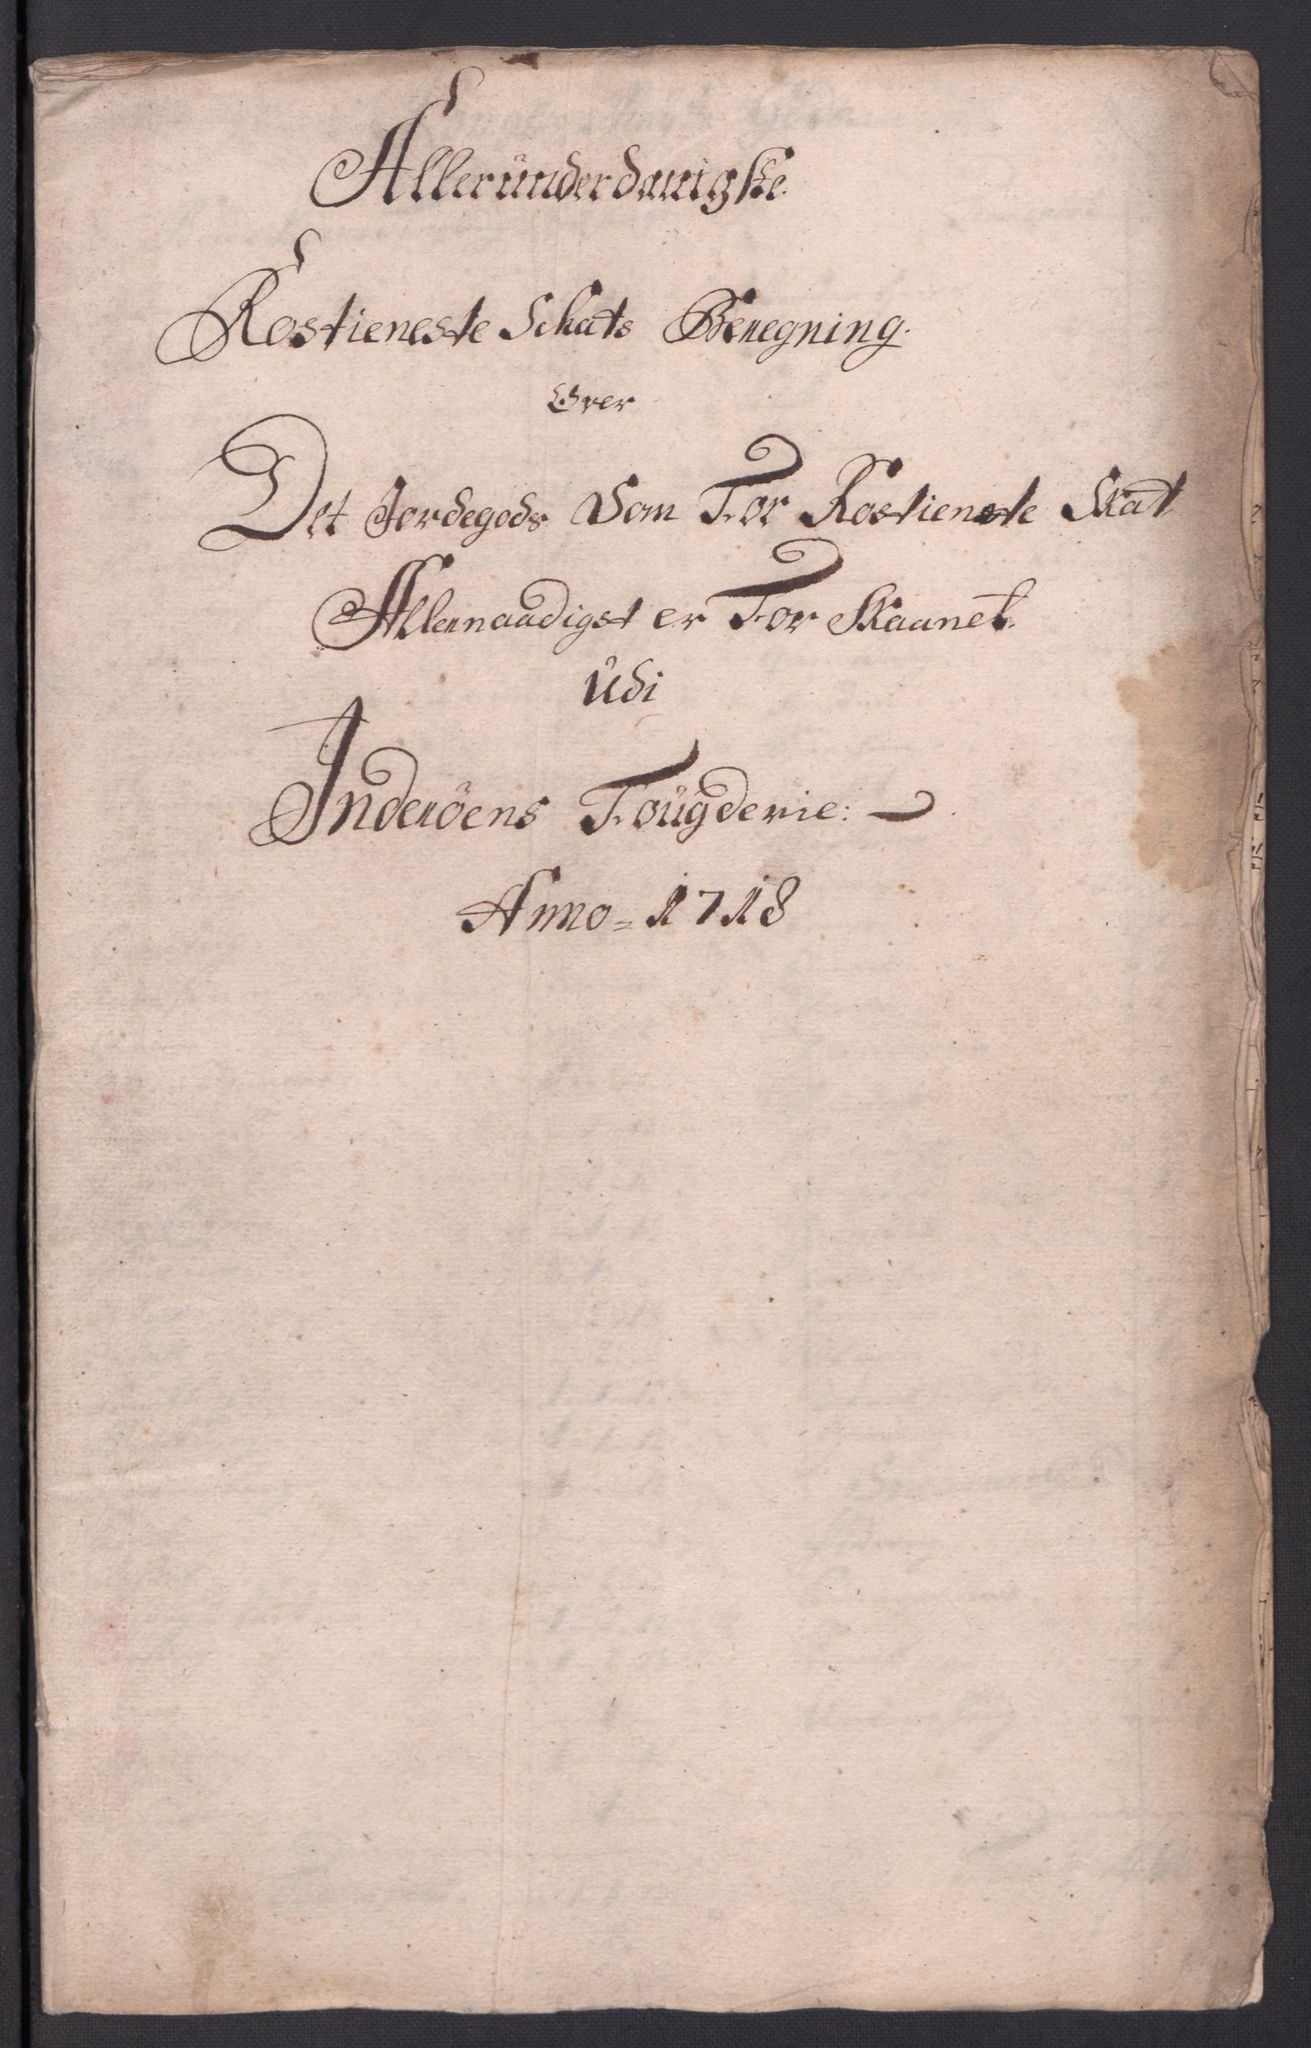 Alleründerdanigste
Rostieneste Schats Beregning.
Over
Det Jordegods Som For Rostieneste Skat
Allernaadigst er For Skaanet.
Udi
Inderöens Foügderie:
Anno = 1718